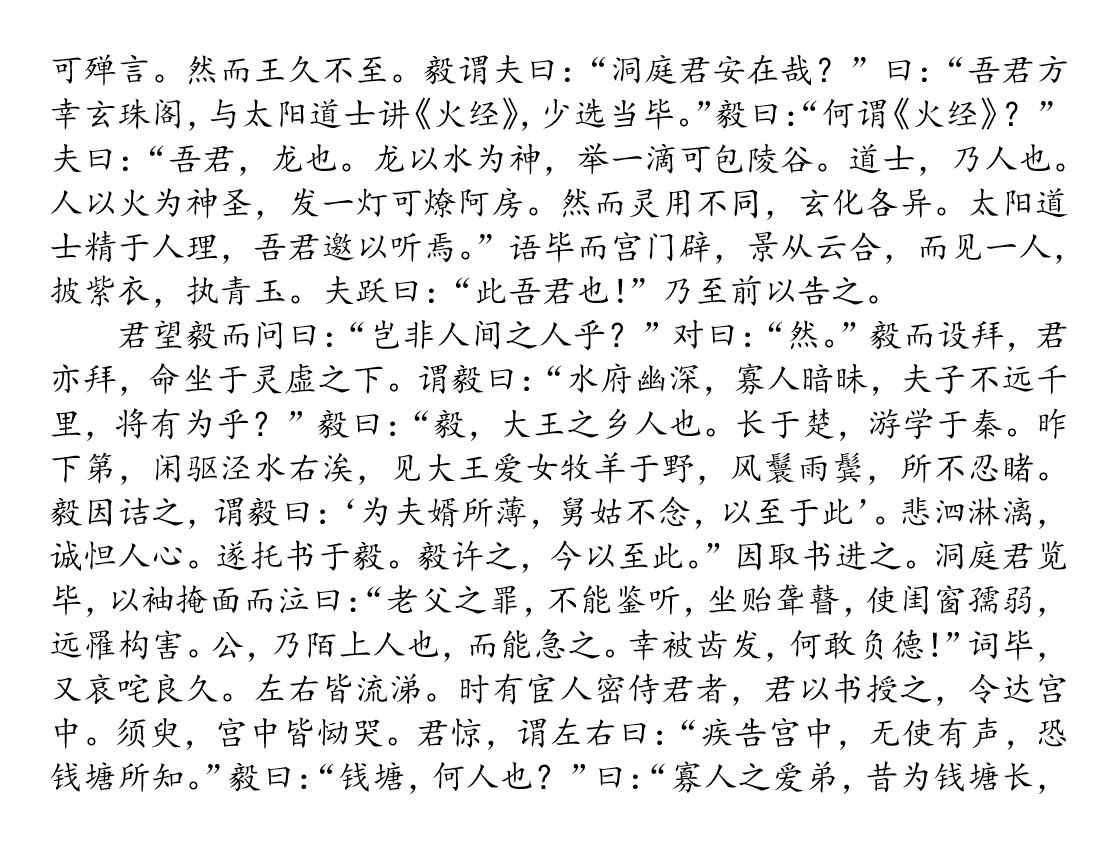 可殚言。然而王久不至。毅谓夫曰：“洞庭君安在哉？”曰：“吾君方
幸玄珠阁，与太阳道士讲《火经》，少选当毕。”毅曰：“何谓《火经》？”
夫曰：“吾君，龙也。龙以水为神，举一滴可包陵谷。道士，乃人也。
人以火为神圣，发一灯可燎阿房。然而灵用不同，玄化各异。太阳道
士精于人理，吾君邀以听焉。”语毕而宫门辟，景从云合，而见一人，
披紫衣，执青玉。夫跃曰：“此吾君也！”乃至前以告之。
君望毅而问曰：“岂非人间之人乎？”对曰：“然。”毅而设拜，君
亦拜，命坐于灵虚之下。谓毅曰：“水府幽深，寡人暗昧，夫子不远千
里，将有为乎？”毅曰：“毅，大王之乡人也。长于楚，游学于秦。昨
下第，闲驱泾水右涘，见大王爱女牧羊于野，风鬟雨鬓，所不忍睹。
毅因诘之，谓毅曰：‘为夫婿所薄，舅姑不念，以至于此’。悲泗淋漓，
诚怛人心。遂托书于毅。毅许之，今以至此。”因取书进之。洞庭君览
毕，以袖掩面而泣曰：“老父之罪，不能鉴听，坐贻聋瞽，使闺窗孺弱，
远罹构害。公，乃陌上人也，而能急之。幸被齿发，何敢负德！”词毕，
又哀咤良久。左右皆流涕。时有宦人密侍君者，君以书授之，令达宫
中。须臾，宫中皆恸哭。君惊，谓左右曰：“疾告宫中，无使有声，恐
钱塘所知。”毅曰：“钱塘，何人也？”曰：“寡人之爱弟，昔为钱塘长，